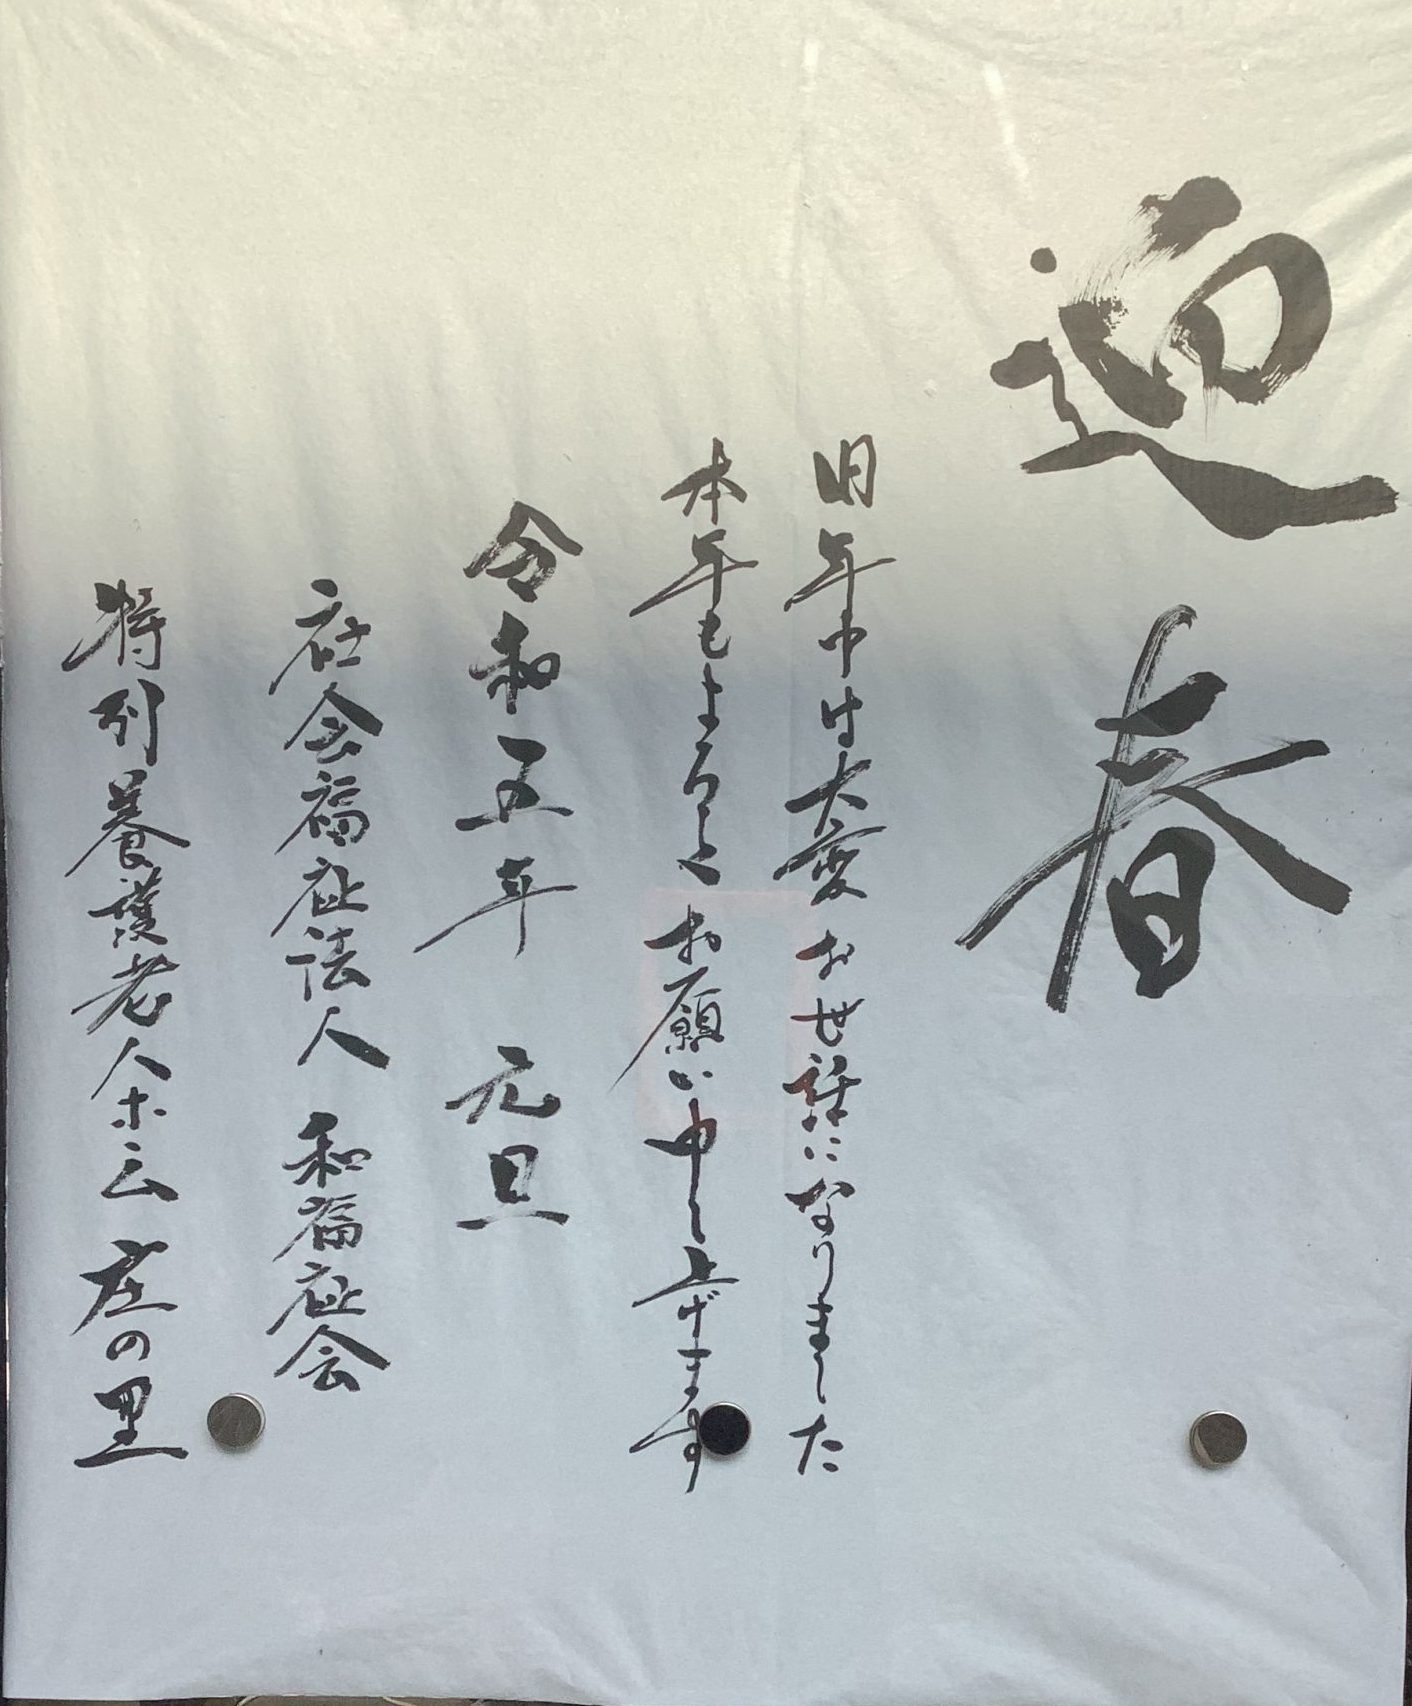 迎春
旧年中は大変お世話になりました
本年もよろしくお願い申し上げます
令和五年 元旦
社会福祉法人 和福祉会
特別養護老人ホーム 庄の里